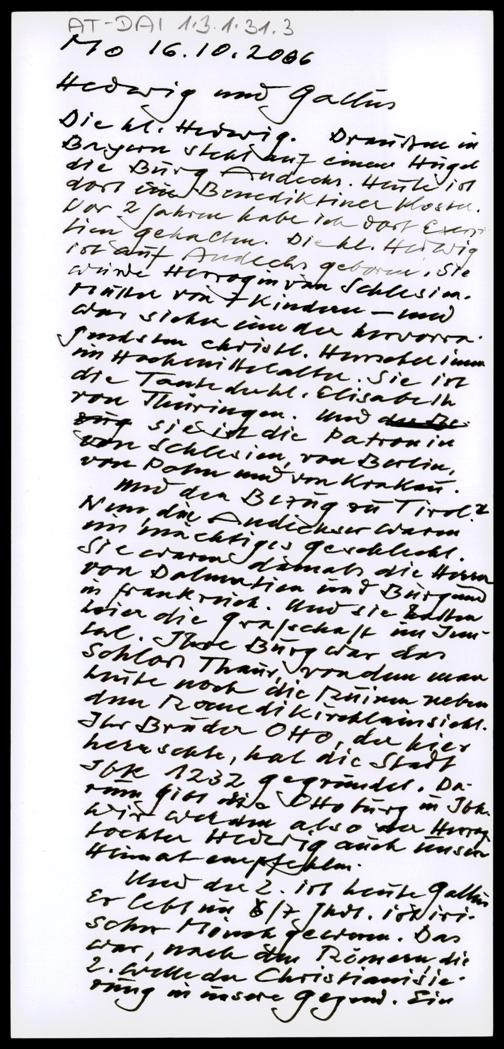 AT-DAI 1.3.1.31.3
Mo 16.10.2006
Hedwig und Gallus
Die hl. Hedwig. Draußen in
Bayern steht auf einem Hügel
die Burg Andechs. Heute ist
dort ein Benediktiner Kloster.
Vor 2 Jahren habe ich dort Exerzi
tien gehalten. Die hl. Hedwig
ist auf Andechs geboren. Sie
wurde Herzogin von Schlesien.
Mutter von 7 Kindern – und
war sicher eine der hervorra-
gendsten christl. Herrscherinnen
im Hochmittelalter. Sie ist
die Tante der hl. Elisabeth
von Thüringen. Und der Be-
zug sie ist die Patronin
von Schlesien, von Berlin,
von Polen und von Krakau.
Und den Bezug zu Tirol?
Nun die Andechser waren
ein mächtiges Geschlecht.
Sie waren damals die Herren
von Dalmatien und Burgund
in Frankreich. Und sie hatten
hier die Grafschaft im Inn-
tal. Ihre Burg war das
Schloss Thaur, von dem man
heute noch die Ruinen neben
dem Romedikirchlein sieht.
Ihr Bruder Otto, der hier
herrschte, hat die Stadt
Ibk 1232 gegründet. Da-
rum gibt die Ottoburg in Ibk.
Wir werden also der Herzog
tochter Hedwig auch unser
Heimat empfehlen.
Und der 2. ist heute Gallus
Er lebt im 6/7. Jhdt. ist iri-
scher Mönch gewesen. Das
war, nach den Römern, die
2. Welle der Christianisie-
rung in unsere Gegend. Ein